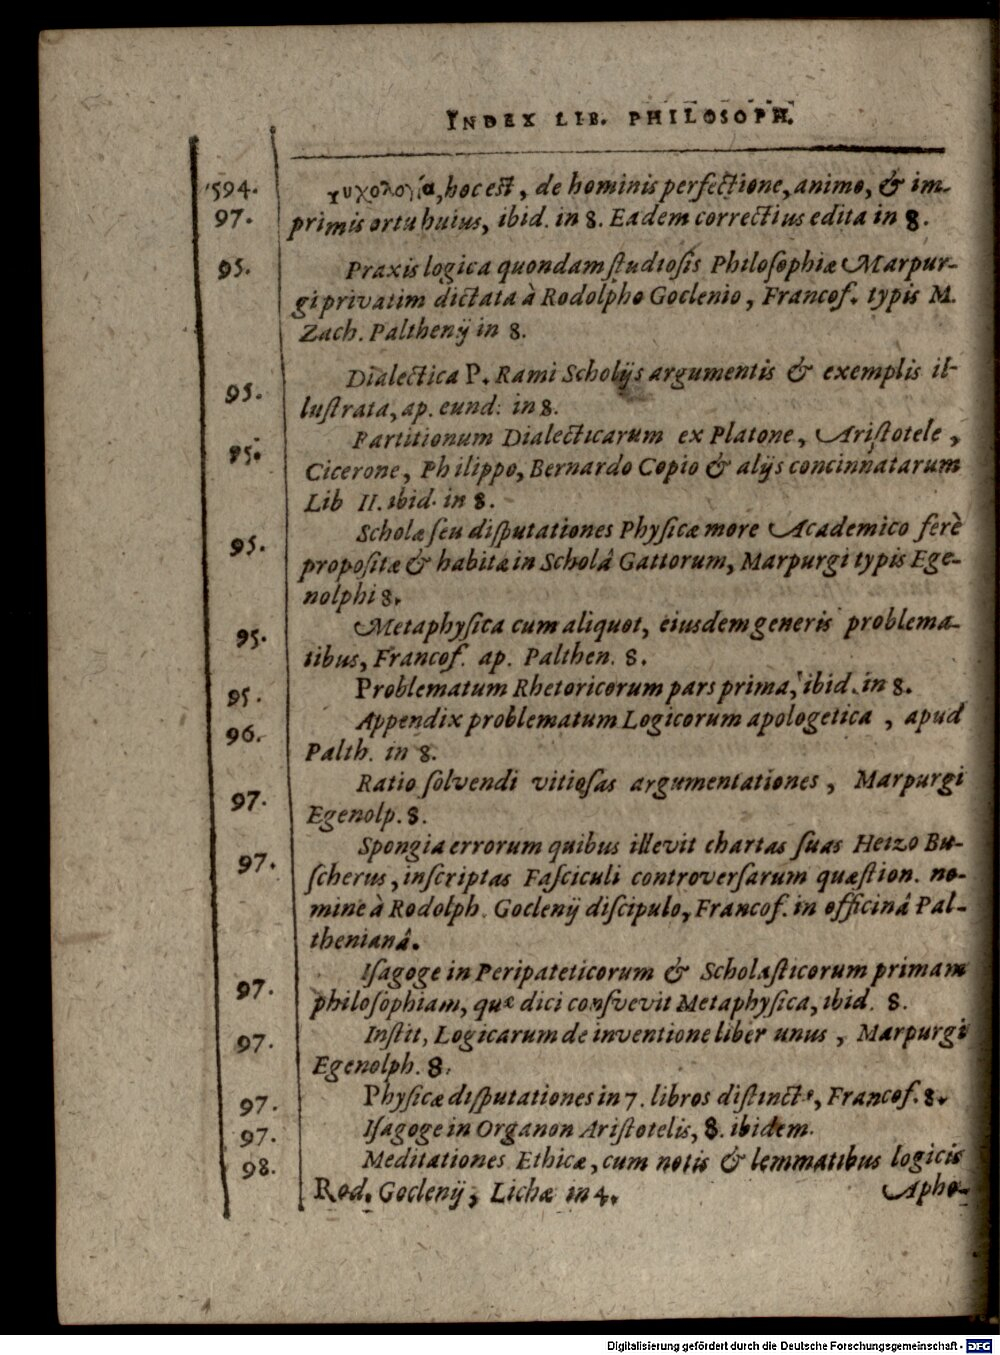 INDEX LIB. PHILOSOPH.
1594. ψυχολογία, hoc est, de hominis perfectione, animo, & im-
97. primis ortu huius, ibid. in 8. Eadem correctius edita in 8.
95. Praxis logica quondam studiosis Philosophiæ Marpur-
gi privatim dictata à Rodolpho Goclenio, Francof. typis M.
Zach. Palthenij in 8.
95. Dialectica P. Rami Scholijs argumentis & exemplis il-
lustrata, ap. eund: in 8.
95. Partitionum Dialecticarum ex Platone, Aristotele,
Cicerone, Philippo, Bernardo Copio & alijs concinnatarum
Lib II. ibid. in 8.
95. Scholæ seu disputationes Physicæ more Academico ferè
propositæ & habitæ in Scholâ Gattorum, Marpurgi typis Ege-
nolphi 8.
95. Metaphysica cum aliquot, eiusdem generis problema-
tibus, Francof. ap. Palthen. 8.
95. Problematum Rhetoricorum pars prima, ibid. in 8.
96. Appendix problematum Logicorum apologetica, apud
Palth. in 8.
97. Ratio solvendi vitiosas argumentationes, Marpurgi
Egenolp. 8.
97. Spongia errorum quibus illevit chartas suas Heizo Bu-
scherus, inscriptas Fasciculi controversarum quæstion. no-
mine à Rodolph. Goclenij discipulo, Francof. in officinâ Pal-
thenianâ.
97. Isagoge in Peripateticorum & Scholasticorum primam
philosophiam, quæ dici consvevit Metaphysica, ibid. 8.
97. Instit, Logicarum de inventione liber unus, Marpurgi
Egenolph. 8.
97. Physicæ disputationes in 7. libros distinctæ, Francof. 8.
97. Isagoge in Organon Aristotelis, 8. ibidem.
98. Meditationes Ethicæ, cum notis & lemmatibus logicis
Rod. Goclenij, Lichæ in 4.
Apho-
Digitalisierung gefördert durch die Deutsche Forschungsgemeinschaft - DFG